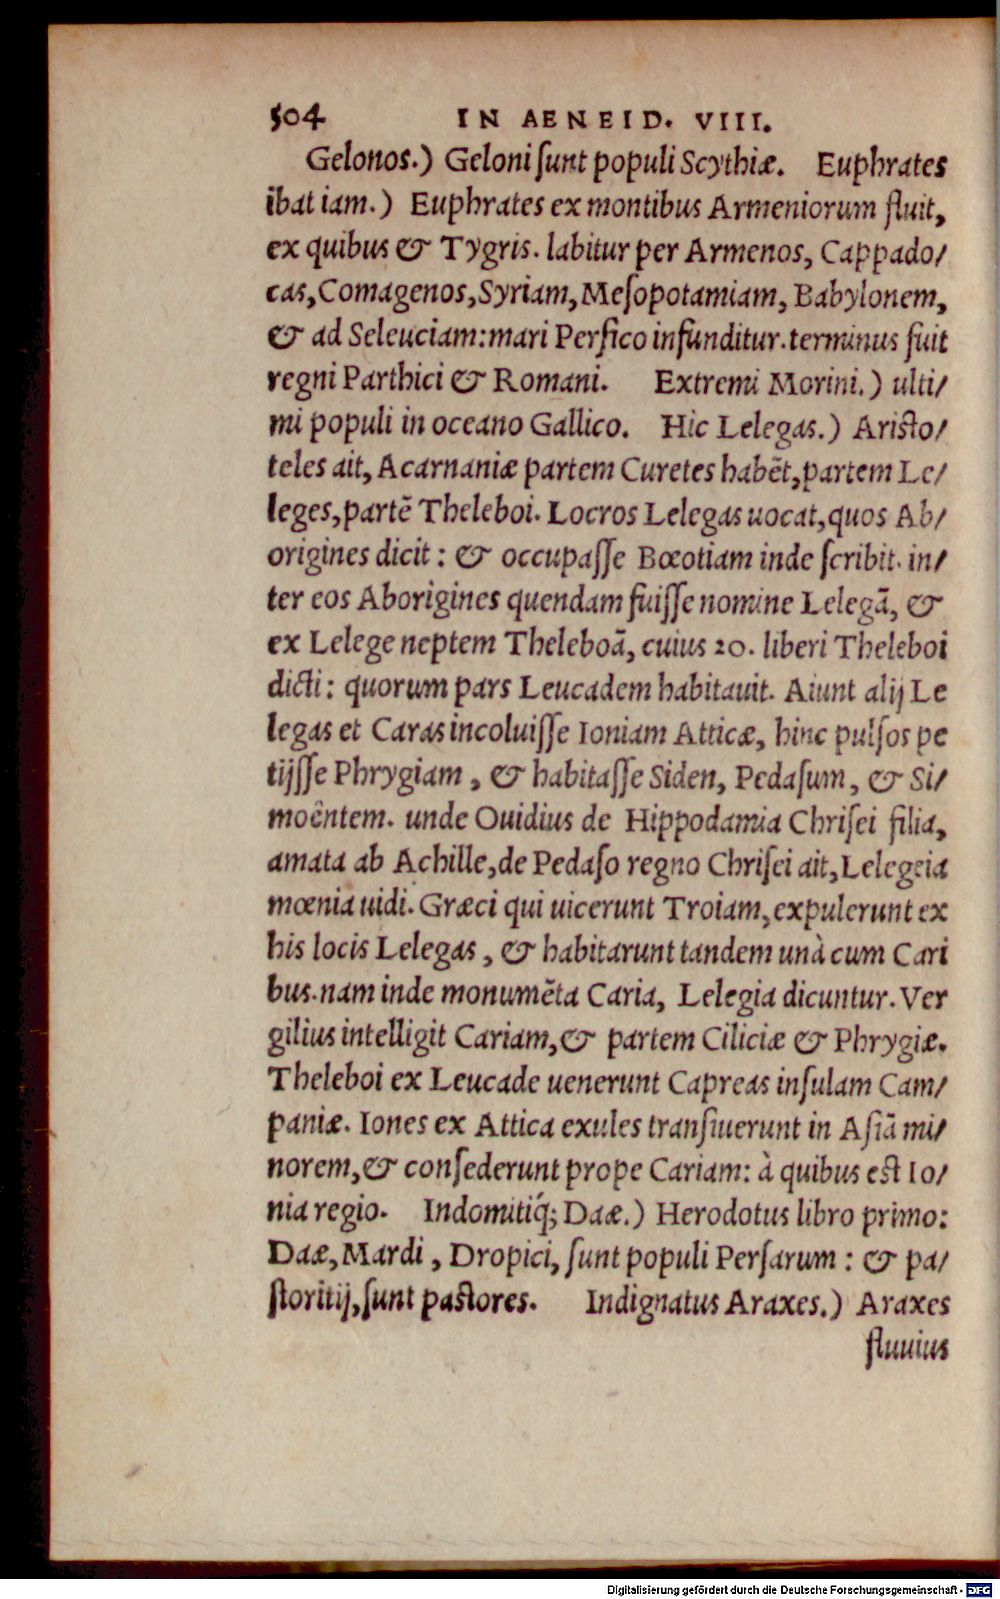 504 IN AENEID. VIII.
Gelonos.) Geloni ſunt populi Scythiæ. Euphrates
ibat iam.) Euphrates ex montibus Armeniorum fluit,
ex quibus & Tygris. labitur per Armenos, Cappado/
cas, Comagenos, Syriam, Meſopotamiam, Babylonem,
& ad Seleuciam: mari Perſico infunditur. terminus fuit
regni Parthici & Romani. Extremi Morini.) ulti/
mi populi in oceano Gallico. Hic Lelegas.) Ariſto/
teles ait, Acarnaniæ partem Curetes habēt, partem Le/
leges, partē Theleboi. Locros Lelegas uocat, quos Ab/
origines dicit: & occupaſſe Bœotiam inde ſcribit. in/
ter eos Aborigines quendam fuiſſe nomine Lelegā, &
ex Lelege neptem Theleboā, cuius 20. liberi Theleboi
dicti: quorum pars Leucadem habitauit. Aiunt alij Le
legas et Caras incoluiſſe Ioniam Atticæ, hinc pulſos pe
tijſſe Phrygiam, & habitaſſe Siden, Pedaſum, & Si/
moëntem. unde Ouidius de Hippodamia Chriſei filia,
amata ab Achille, de Pedaſo regno Chriſei ait, Lelegeia
mœnia uidi. Græci qui uicerunt Troiam, expulerunt ex
his locis Lelegas, & habitarunt tandem unà cum Cari
bus. nam inde monumēta Caria, Lelegia dicuntur. Ver
gilius intelligit Cariam, & partem Ciliciæ & Phrygiæ.
Theleboi ex Leucade uenerunt Capreas inſulam Cam/
paniæ. Iones ex Attica exules tranſiuerunt in Aſiā mi/
norem, & conſederunt prope Cariam: à quibus eſt Io/
nia regio. Indomitiq́; Daæ.) Herodotus libro primo:
Daæ, Mardi, Dropici, ſunt populi Perſarum: & pa/
ſtoritij, ſunt paſtores. Indignatus Araxes.) Araxes
fluuius
Digitalisierung gefördert durch die Deutsche Forschungsgemeinschaft - DFG